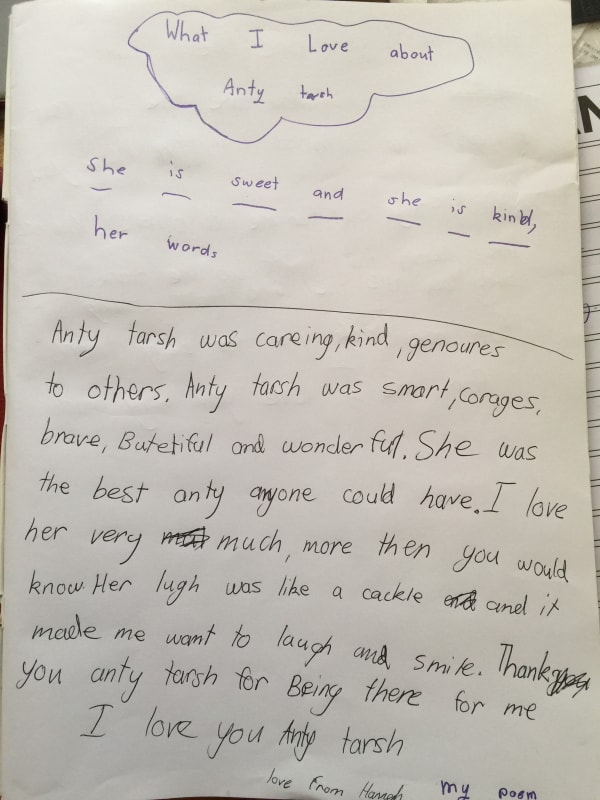 What I Love about
Anty tarsh
She is sweet and she is kind,
her words
Anty tarsh was careing, kind, genoures
to others. Anty tarsh was smart, corages,
brave, Butetiful and wonderful. She was
the best anty anyone could have. I love
her very much, more then you would
know. Her lugh was like a cackle and it
made me want to laugh and smile. Thank
you anty tarsh for Being there for me
I love you Anty tarsh
love From Hannah my poem